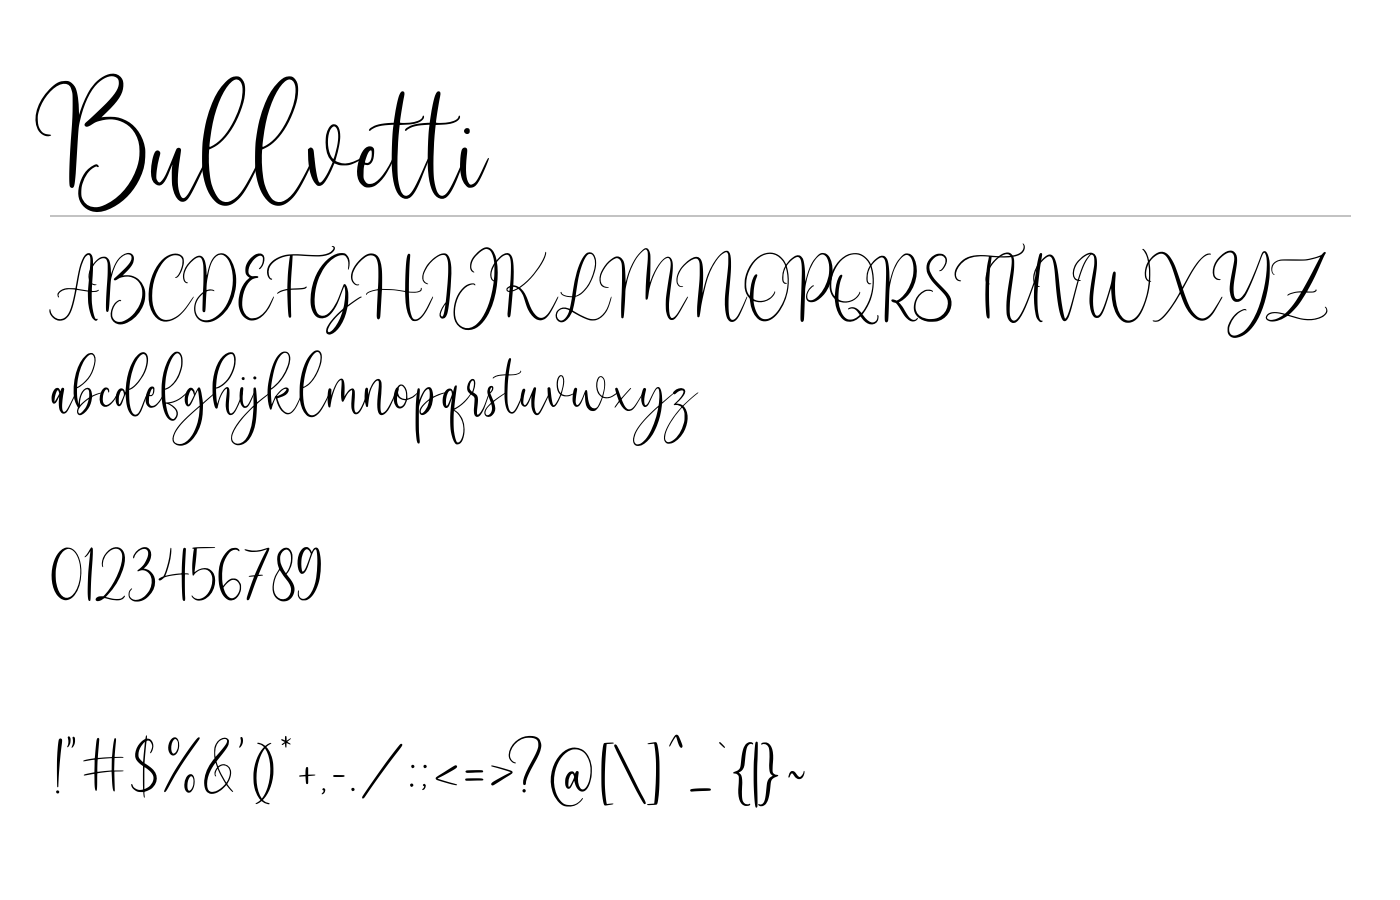 Bullvetti
ABCDEFGHIJKLMNOPQRSTUVWXYZ
abcdefghijklmnopqrstuvwxyz
0123456789
!"#$%&'()*+,-./:;<=>?@[\]^_`{|}~